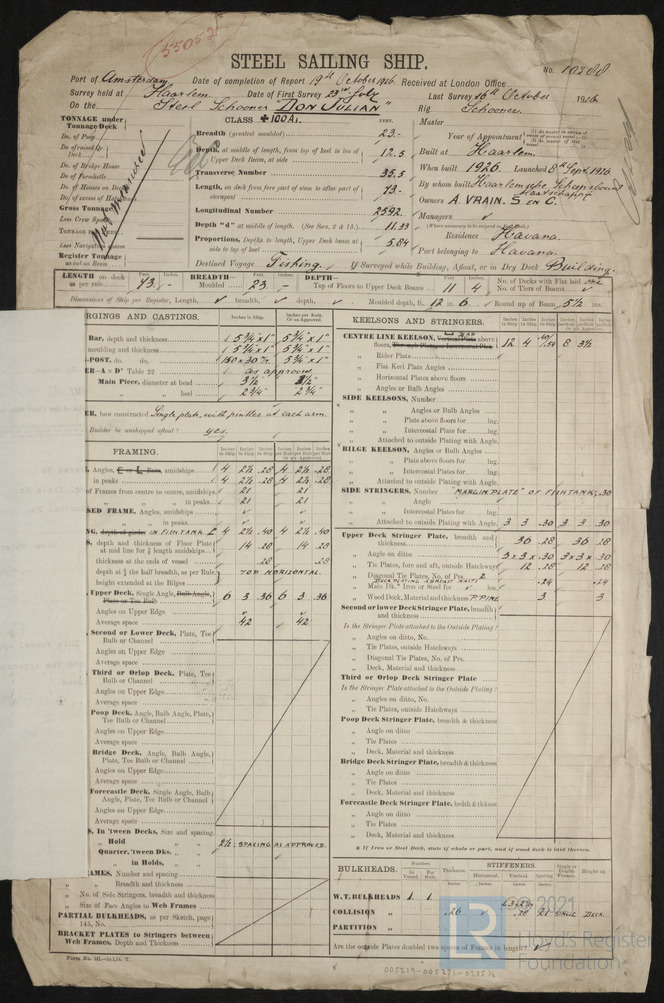 55052
STEEL SAILING SHIP.
No. 10588
Port of Amsterdam Date of completion of Report 19th October 1926 Received at London Office
Survey held at Haarlem Date of First Survey 23rd July Last Survey 16th October 1926
On the Steel Schooner "DON JULIAN" Rig Schooner
TONNAGE under Tonnage Deck
Do. of Poop
Do. of Bridge House
Do. of Forecastle
Do. of Houses on Deck
Gross Tonnage
Less Crew Space
Register Tonnage
as cut on Beam
Not measured
CLASS ✠100A1.
FEET.
Breadth (greatest moulded) 23 -
Depth, at middle of length, from top of keel to top of Upper Deck Beam, at side 12.5
Transverse Number 35,5
Length, on deck from fore part of stem to after part of sternpost 73 -
Longitudinal Number 2592
Depth "d" at middle of length. (See Secs. 2 & 13.) 11.33
Proportions, Depths to length, Upper Deck Beam at side to top of keel 5.84
Destined Voyage Fishing
Master
Year of Appointment
Built at Haarlem
When built 1926. Launched 8th Sept. 1926
By whom built Haarlemsche Scheepsbouw Maatschappij
Owners A. VRAIN. S. en C.
Managers ✓
Residence Havana.
Port belonging to Havana.
If Surveyed while Building, Afloat, or in Dry Dock Building.
LENGTH on deck as per rule 73 - BREADTH— Moulded 23 - DEPTH— Top of Floors to Upper Deck Beams 11 4 No. of Decks with Flat laid one No. of Tiers of Beams ✓
Dimensions of Ship per Register, Length, ✓ breadth, ✓ depth, ✓ Moulded depth, ft. 12 in. 6. Round up of Beam 5½ ins.
RGINGS AND CASTINGS. Inches in Ship. Inches per Rule. Or as Approved.
Bar, depth and thickness 5¾" x 1" 5¾" x 1"
moulding and thickness 5¾" x 1" 5¾" x 1"
-POST, do. do.
ER—A × D° Table 22 as approved
Main Piece, diameter at head 3½ 3½
" " heel 2¾" 2¾"
ER, how constructed Single plate, with pintles at each arm.
Rudder be unshipped afloat? yes.
FRAMING.
Angles, amidships 4 2½ .28 4 2½ .28
in peaks 4 2½ .28 4 2½ .28
of Frames from centre to centre, amidships 21 21
" " in peaks 21 21
SED FRAME, Angles, amidships ✓ ✓
" in peaks ✓ ✓
NG, IN FISH TANK 4 2½ .40 4 2½ .40
S, depth and thickness of Floor Plate at mid line for ½ length amidships 14 .28 14 .28
thickness at the ends of vessel .28 .28
depth at ¾ the half breadth, as per Rule TOP HORIZONTAL.
height extended at the Bilges
Upper Deck, Single Angle, Bulb Angle, Plate or Tee Bulb 6 3 .36 6 3 .36
Angles on Upper Edge ✓ ✓
Average space 42 42
Second or Lower Deck, Plate, Tee Bulb or Channel
Angles on Upper Edge
Average space
Third or Orlop Deck, Plate, Tee Bulb or Channel
Angles on Upper Edge
Average space
Poop Deck, Angle, Bulb Angle, Plate, Tee Bulb or Channel
Angles on Upper Edge
Average space
Bridge Deck, Angle, Bulb Angle, Plate, Tee Bulb or Channel
Angles on Upper Edge
Average space
Forecastle Deck, Single Angle, Bulb Angle, Plate, Tee Bulb or Channel
Angles on Upper Edge
Average space
S, In 'tween Decks, Size and spacing
" Hold " " 2½ : SPACING AS APPROVED.
Quarter, 'tween Dks. " "
" in Holds, " "
AMES, Number and spacing
" Breadth and thickness
" No. of Side Stringers, breadth and thickness
" Size of Face Angles to Web Frames
PARTIAL BULKHEADS, as per Sketch, page 145, No.
BRACKET PLATES to Stringers between Web Frames, Depth and Thickness
Form No. 1C.
KEELSONS AND STRINGERS. Inches in Ship Inches per Rule or as Approved
CENTRE LINE KEELSON, Vertical Plate above floors, 12 4 8 3½
" Rider Plate
" Flat Keel Plate Angles
" Horizontal Plates above floors
" Angles or Bulb Angles
SIDE KEELSONS, Number
" Angles or Bulb Angles
" Plate above floors for lng.
" Intercostal Plate for lng.
" Attached to outside Plating with Angle
BILGE KEELSON, Angles or Bulb Angles
" Plate above floors for lng.
" Intercostal Plates for lng.
" Attached to outside Plating with Angle
SIDE STRINGERS, Number "MARGIN PLATE" OF FISHTANK: .30
" Angle
" Intercostal Plates for lng.
" Attached to outside Plating with Angle 3 3 .30 3 3 .30
Upper Deck Stringer Plate, breadth and thickness 36 .28 36 .28
" Angle on ditto 3 x 3 x .30 3 x 3 x .30
" Tie Plates, fore and aft, outside Hatchways 12 .28 12 .28
" Diagonal Tie Plates, No. of Prs. 2
" Main Dk. Iron or Steel for .24 .24
" Wood Deck, Material and thickness P.PINE 3 3
Second or lower Deck Stringer Plate, breadth and thickness
Is the Stringer Plate attached to the Outside Plating?
" Angles on ditto, No.
" Tie Plates, outside Hatchways
" Diagonal Tie Plates, No. of Prs.
" Deck, Material and thickness
Third or Orlop Deck Stringer Plate
Is the Stringer Plate attached to the Outside Plating?
" Angles on ditto, No.
" Tie Plates, outside Hatchways
Poop Deck Stringer Plate, breadth & thickness
" Angle on ditto
" Tie Plates
" Deck, Material and thickness
Bridge Deck Stringer Plate, breadth & thickness
" Angle on ditto
" Tie Plates
" Deck, Material and thickness
Forecastle Deck Stringer Plate, brdth & thkness
" Angle on ditto
" Tie Plates
" Deck, Material and thickness
* If Iron or Steel Deck, state if whole or part, and if wood deck is laid thereon.
BULKHEADS. Number. In Vessel. Per Rule. Thickness. STIFFENERS. Horizontal. Vertical. Spacing Single or Double Frames. Height up.
W.T. BULKHEADS 1 1
COLLISION " .26 ✓ .28 21 SINGLE DECK.
PARTITION "
Are the outside Plates doubled two spaces of Frames in length? ✓
© 2021
LR Lloyd's Register Foundation
005219-005232-0235½